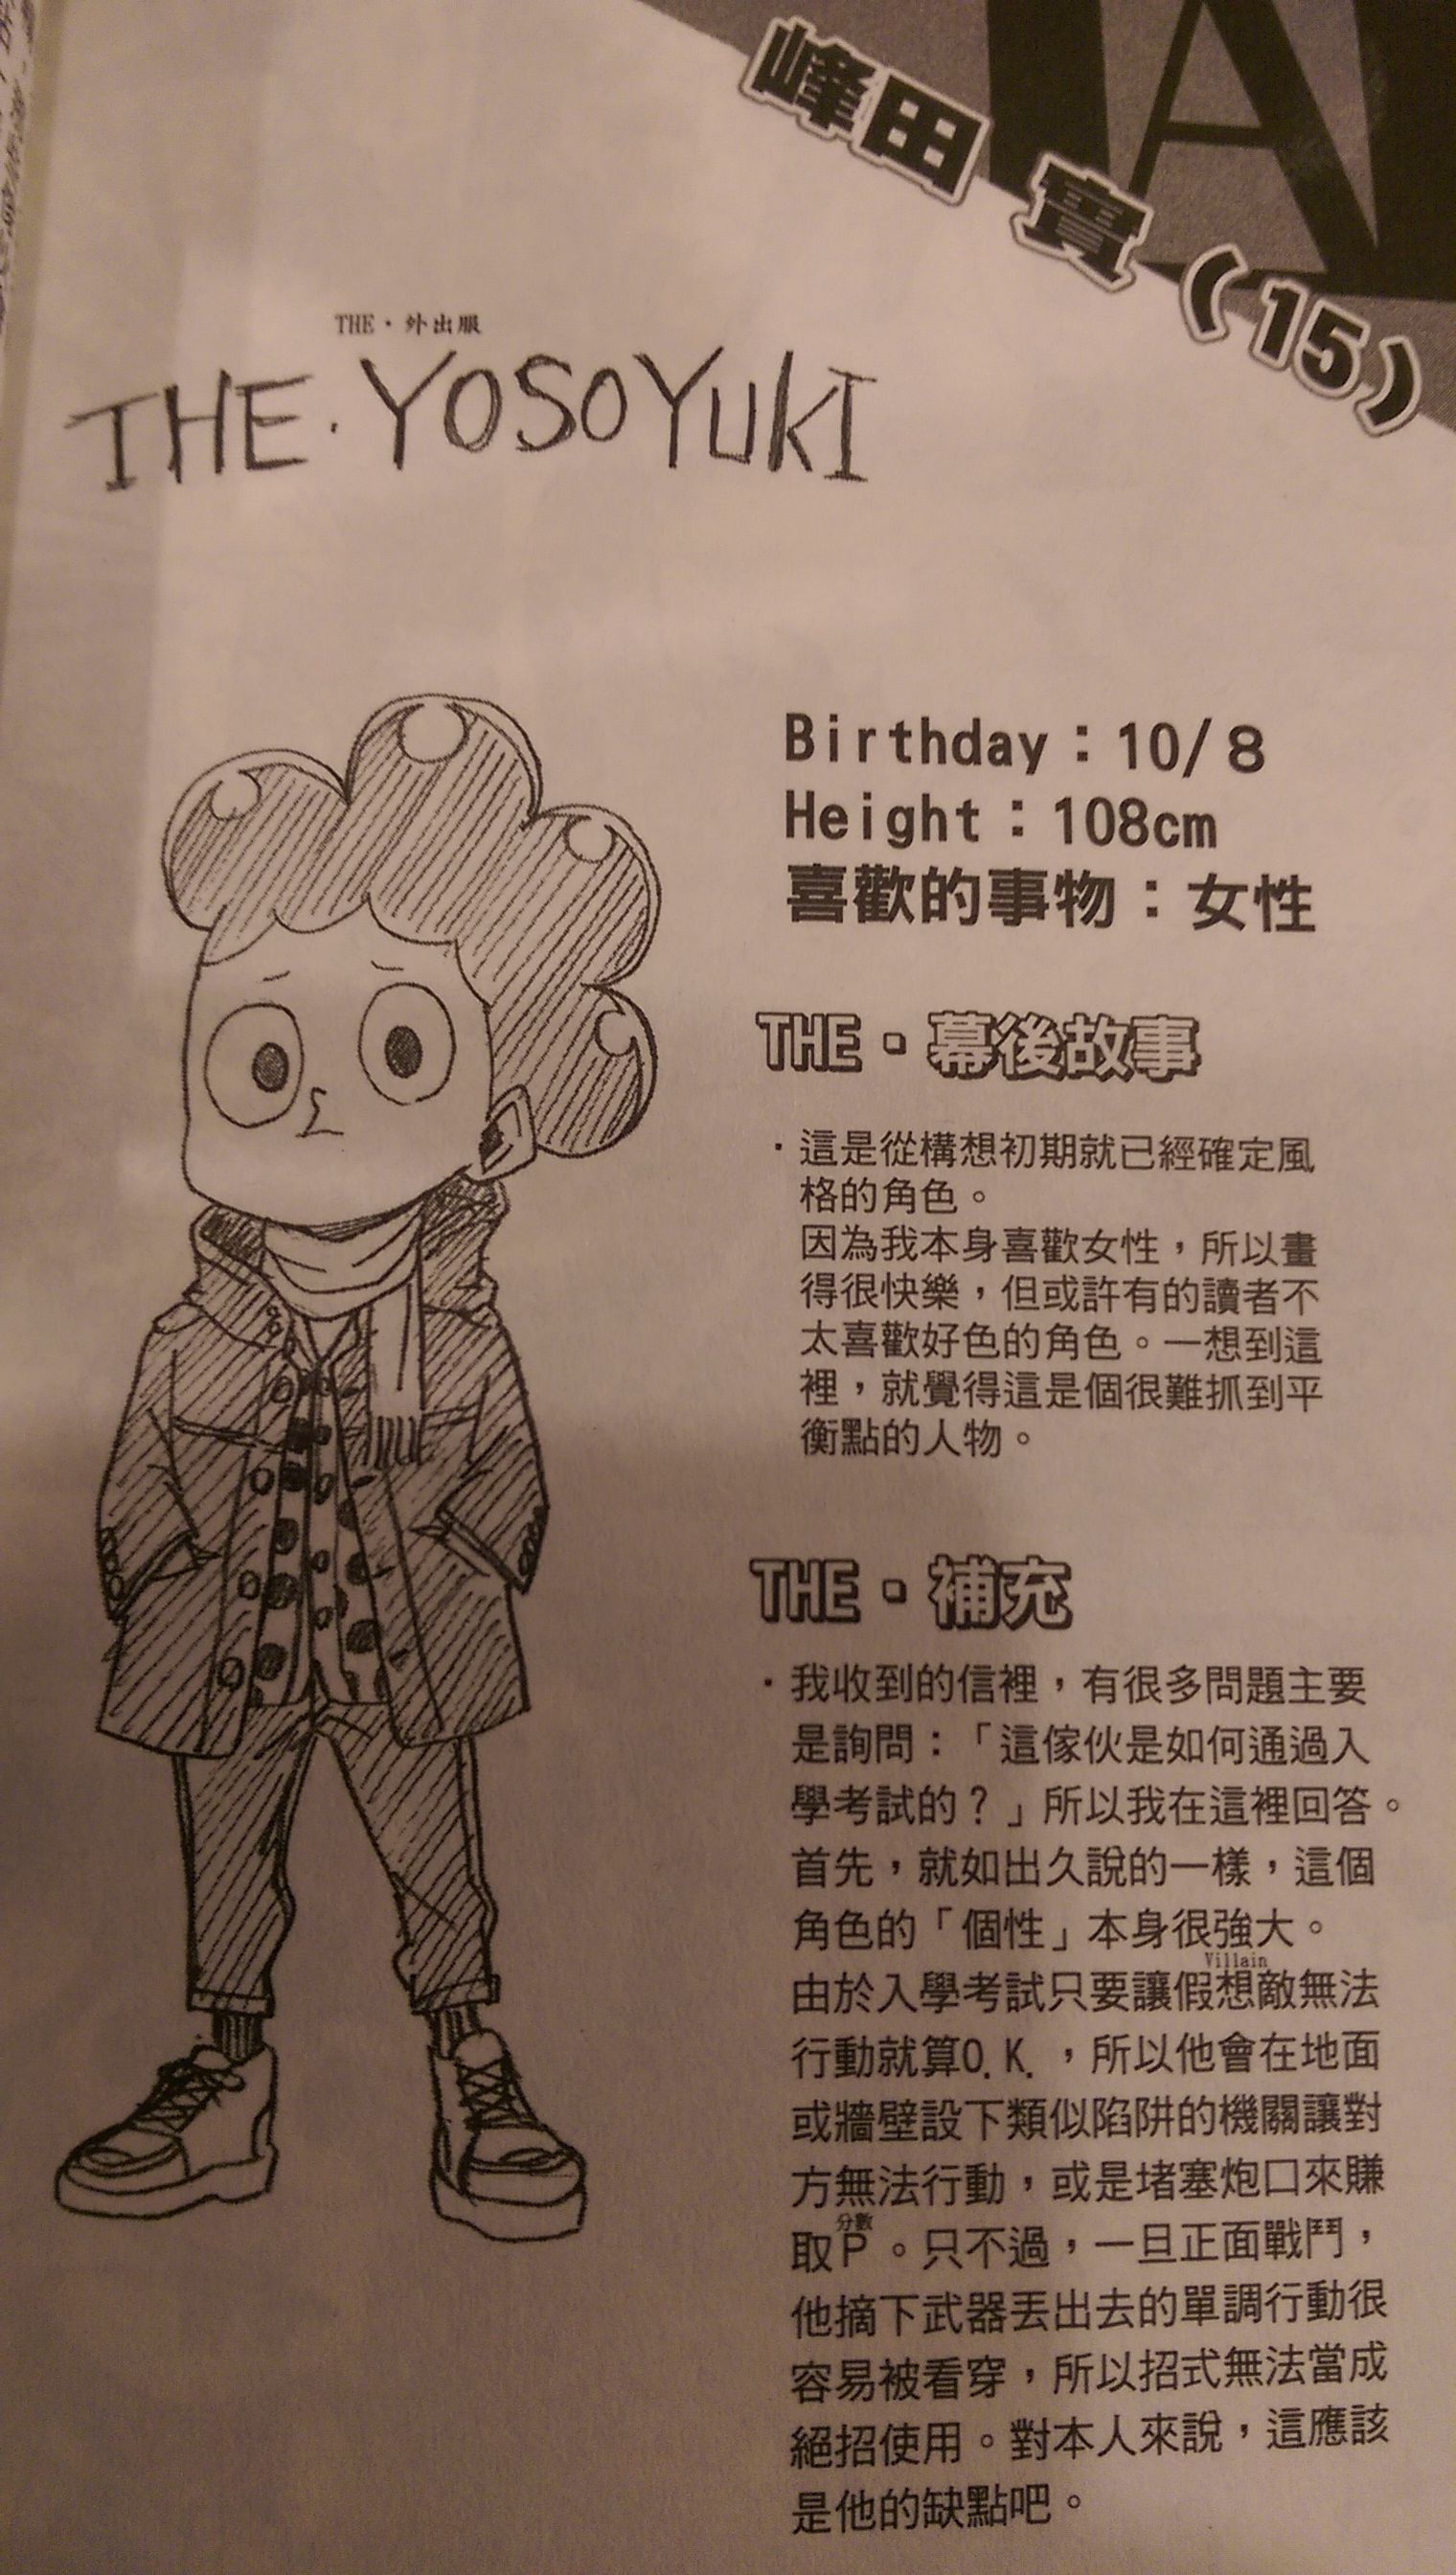 峰田 實（15）
THE・外出服
THE・YOSOYUKI
Birthday：10/8
Height：108cm
喜歡的事物：女性
THE・幕後故事
・這是從構想初期就已經確定風
格的角色。
因為我本身喜歡女性，所以畫
得很快樂，但或許有的讀者不
太喜歡好色的角色。一想到這
裡，就覺得這是個很難抓到平
衡點的人物。
THE・補充
・我收到的信裡，有很多問題主要
是詢問：「這傢伙是如何通過入
學考試的？」所以我在這裡回答。
首先，就如出久說的一樣，這個
角色的「個性」本身很強大。
Villain
由於入學考試只要讓假想敵無法
行動就算O.K.，所以他會在地面
或牆壁設下類似陷阱的機關讓對
方無法行動，或是堵塞炮口來賺
分數
取P。只不過，一旦正面戰鬥，
他摘下武器丟出去的單調行動很
容易被看穿，所以招式無法當成
絕招使用。對本人來說，這應該
是他的缺點吧。